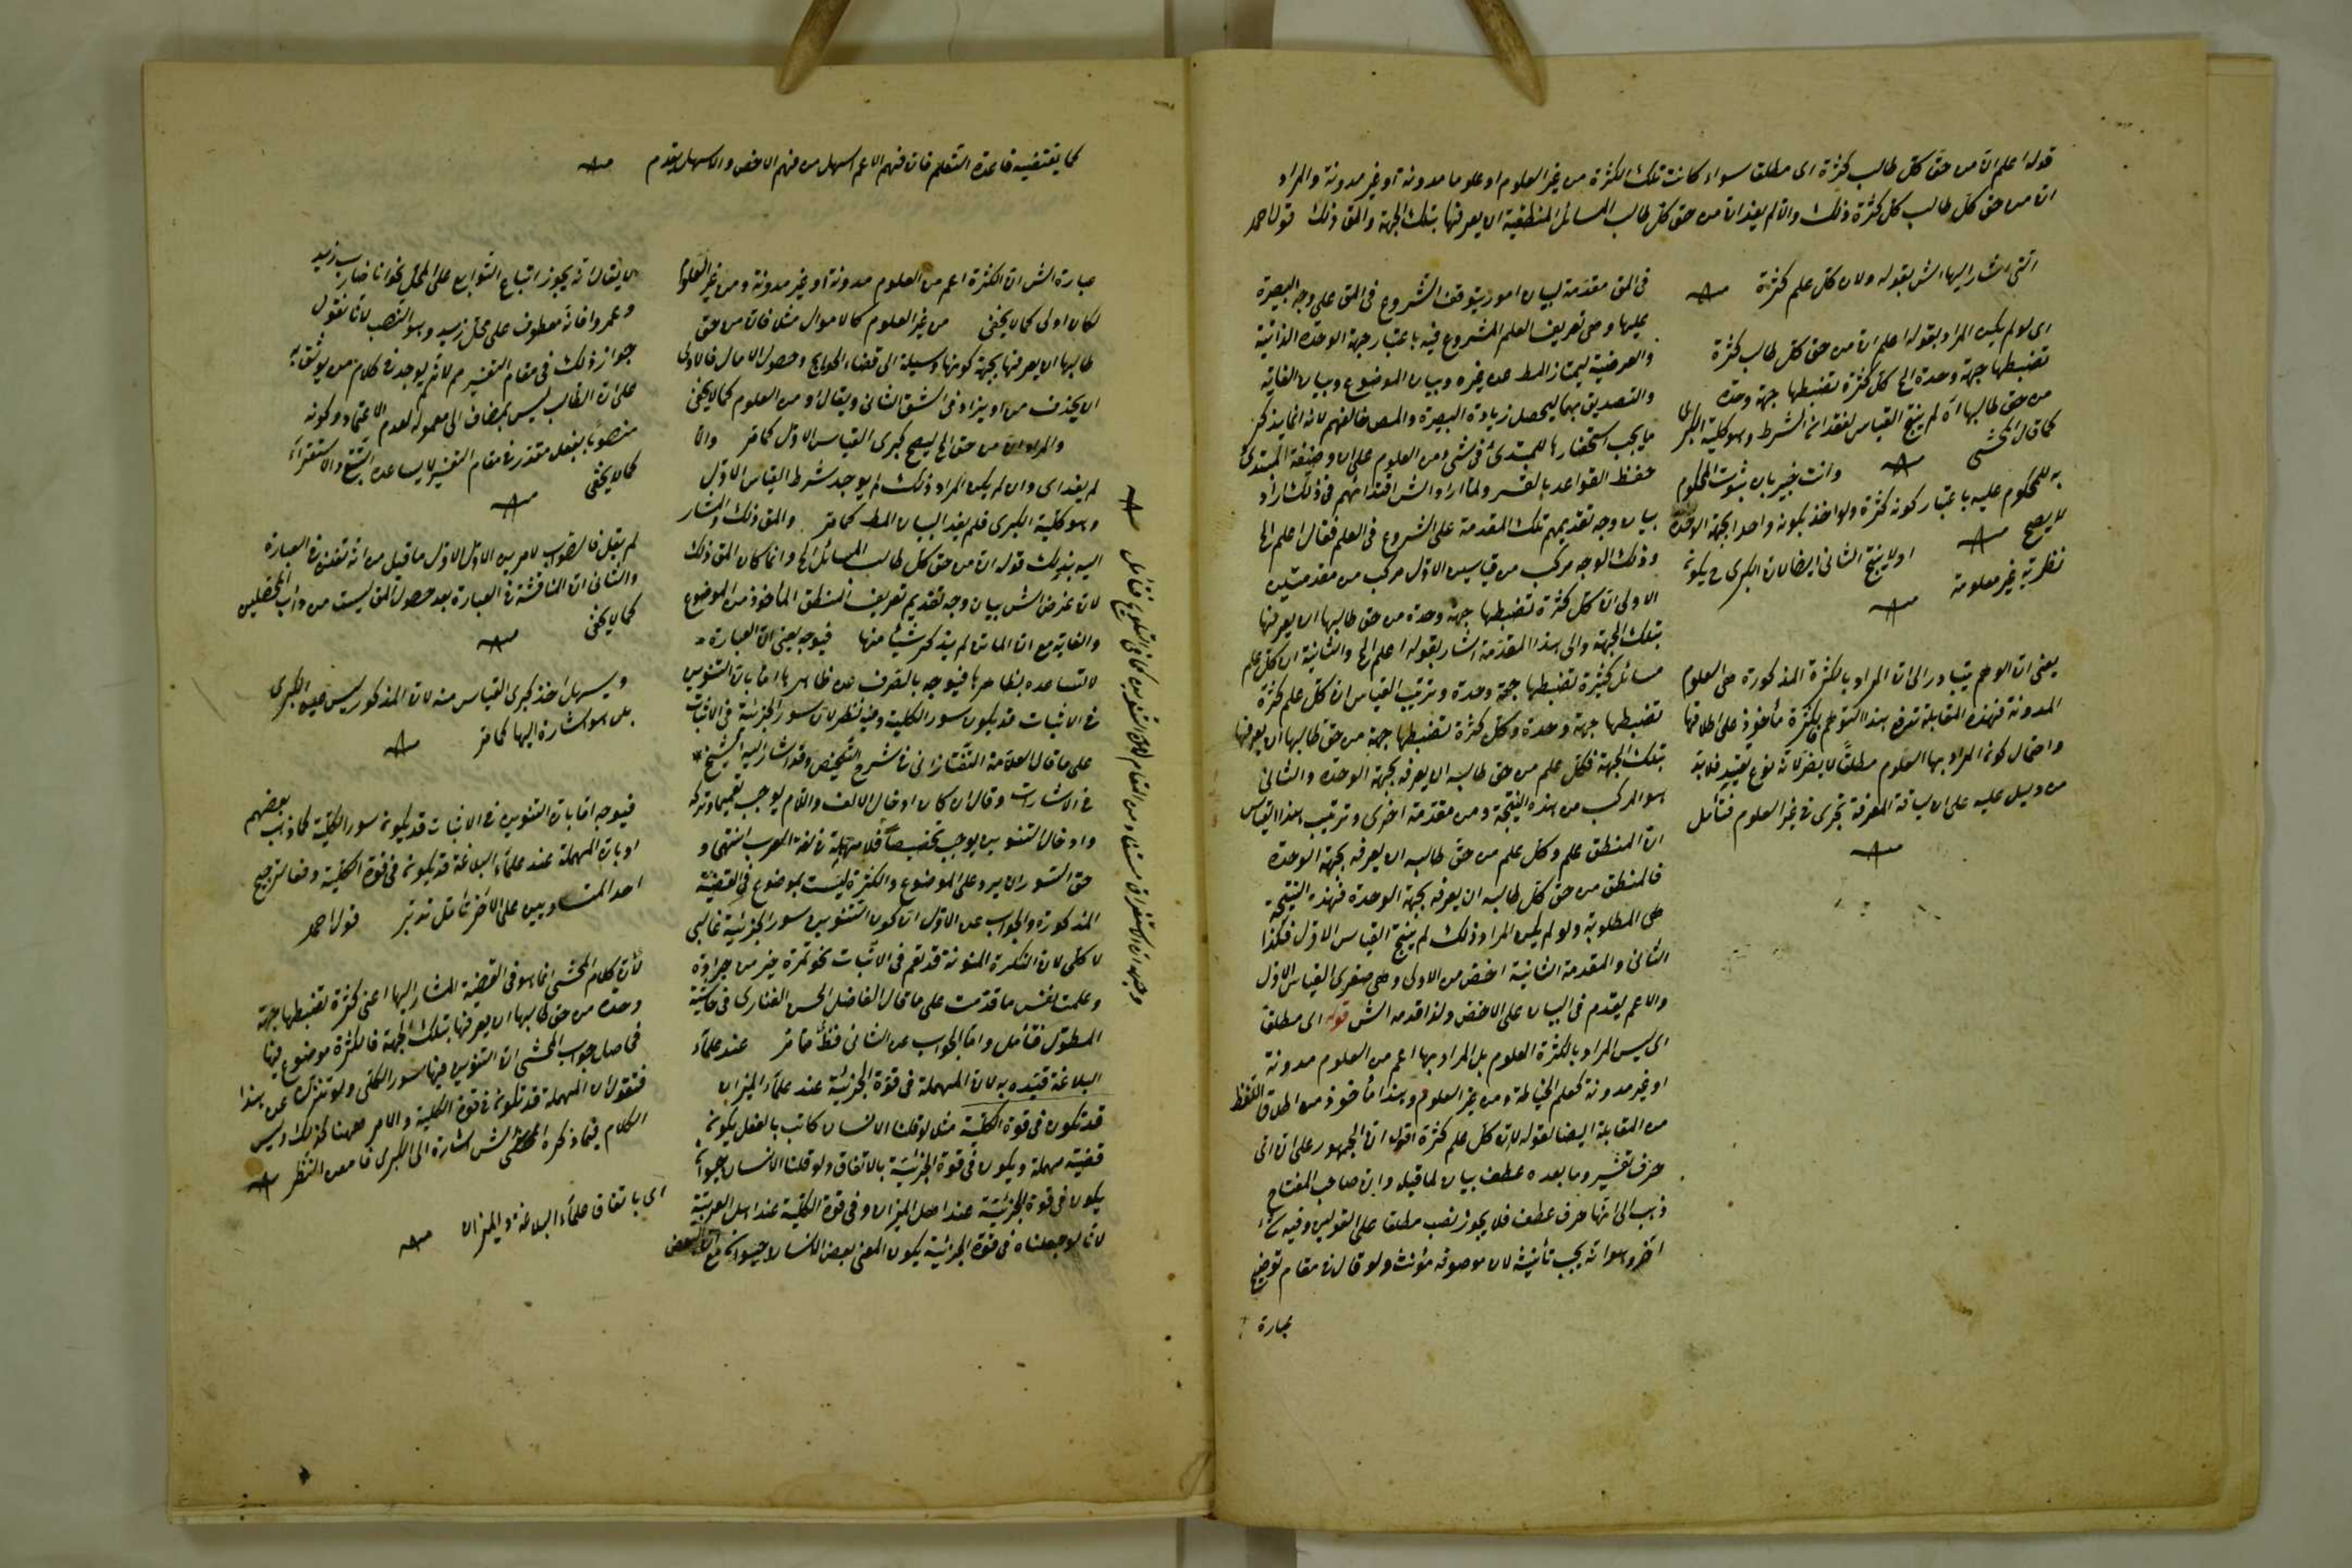 قوله اعلم ان من حق كل طالب كثرة اى مطلقا سواء كانت تلك الكثرة من غير العلوم او علوما مدونة او غير مدونة والمراد
ان من حق كل طالب كل كثرة ذلك والا لم يفد ان من حق كل طالب المسائل المنطقية ان يعرفها بتلك الجهة والمق ذلك قوله احمد
التى اشار اليها الش بقوله ولان كل علم كثرة
اى لو لم يكن المراد بقوله اعلم ان من حق كل طالب كثرة
تضبطها جهة وحدة الخ كل كثرة تضبطها جهة وحدة
من حق طالبها اه لم ينتج القياس لفقدان الشرط وهو كلية الكبرى
كما قال المحشى
وانت خبير بان ثبوت المحكوم
به للمحكوم عليه باعتبار كونه كثرة ولا اخذ بكونه واحدا بجهة الوحدة
لا يصح
او لا ينتج الثانى ايضا لان الكبرى ح يكون
نظرية غير معلومة
يعنى ان الوهم يتبادر الى ان المراد بالكثرة المذكورة هى العلوم
المدونة فهذه المقابلة تدفع هذا التوهم فالكثرة مأخوذ على اطلاقها
واحتمال كون المراد بها العلوم مطلقا لا يضر لانه نوع تقييد فلا بد
من دليل عليه على ان سياقة المعرفة تجرى فى غير العلوم فتأمل
فى المق مقدمة لبيان امور يتوقف الشروع فى المق على وجه البصيرة
عليها وهى تعريف العلم المشروع فيه باعتبار جهة الوحدة الذاتية
والعرضية ليمتاز المط عن غيره وبيان الموضوع وبيان الغاية
والتصديق بهما ليحصل زيادة البصيرة والمص خالفهم لانه انما يذكر
ما يجب استحضاره للمبتدئ فى شئ من العلوم على ان وظيفة المبتدئ
حفظ القواعد بالقسر ولما اراد الش اقتدائهم فى ذلك اراد
بيان وجه تقديمهم تلك المقدمة على الشروع فى العلم فقال اعلم الخ
وذلك الوجه مركب من قياسين الاول مركب من مقدمتين
الاولى ان كل كثرة تضبطها جهة وحدة من حق طالبها ان يعرفها
بتلك الجهة والى هذا المقدمة اشار بقوله اعلم الخ والثانية ان كل علم
مسائل كثيرة تضبطها جهة وحدة وترتيب القياس ان كل علم كثرة
تضبطها جهة وحدة وكل كثرة تضبطها جهة من حق طالبها ان يعرفها
بتلك الجهة فكل علم من حق طالبه ان يعرفه بجهة الوحدة والثانى
هو المركب من هذه النتيجة ومن مقدمة اخرى وترتيب هذا القياس
ان المنطق علم وكل علم من حق طالبه ان يعرفه بجهة الوحدة
فالمنطق من حق كل طالبه ان يعرفه بجهة الوحدة فهذه النتيجة
هى المطلوبة ولو لم يكن المراد ذلك لم ينتج القياس الاول فكذا
الثانى والمقدمة الثانية اخص من الاولى وهى صغرى القياس الاول
والاعم يقدم فى البيان على الاخص ولذا قدمه الش قوله اى مطلقا
اى ليس المراد بالكثرة العلوم بل المراد بها اعم من العلوم مدونة
او غير مدونة كعلم الخياطة ومن غير العلوم وهذا مأخوذ من اطلاق اللفظ
من المقابلة ايضا لقوله لان كل علم كثرة اقول ان الجمهور على ان اى
حرف تفسير وما بعده عطف بيان لما قبله وان صاحب المفتاح
ذهب الى انها حرف عطف فلا يجوز نصب مطلقا على القولين وفيه شئ
آخر وهو انه يجب تأنيثه لان موصوفه مؤنث ولو قال فى مقام توضيح
عبارة
كما يقتضيه قاعدة التعلم فان فهم الاعم اسهل من فهم الاخص والاسهل يقدم
عبارة الش ان الكثرة اعم من العلوم مدونة او غير مدونة ومن غير العلوم
لكان اولى كما لا يخفى من غير العلوم كالاموال مثلا فان من حق
طالبها ان يعرفها بجهة كونها وسيلة الى قضاء الحوايج وحصول الامال فالاولى
ان يحذف من او يزاد فى الشق الثانى ويقال او من العلوم كما لا يخفى
والمراد ان من حق الخ ليصح كبرى القياس الاول كما مر والا
لم يفد اى وان لم يكن المراد ذلك لم يوجد شرط القياس الاول
وهو كلية الكبرى فلم يفد البيان المط كما مر والمق ذلك والمشار
اليه بذلك قوله ان من حق كل طالب المسائل الخ وانما كان المق ذلك
لان غرض الش بيان وجه تقديم تعريف المنطق المأخوذ من الموضوع
والغاية مع ان الماتن لم يذكر شيئا منها فيوجه يعنى ان العبارة
لا تساعده بظاهرها فيوجه بالصرف عن ظاهرها اما بان التنوين
فى الاثبات قد يكون سور الكلية وفيه نظر لان سور الجزئية فى الاثبات
على ما قال العلامة التفتازانى فى شرح التلخيص وقد اشار اليه الشيخ
فى الاشارات وقال ان كان ادخال الالف واللام يوجب تعميما وتركه
وادخال التنوين يوجب تخصيصا فلا مهملة فى لغة العرب انتهى و
حق السور ان يرد على الموضوع والكثرة ليست بموضوع فى القضية
المذكورة والجواب عن الاول ان كون التنوين سور الجزئية غالبى
لا كلى لان النكرة المنونة قد تعم فى الاثبات نحو تمرة خير من جرادة
وعلمت نفس ما قدمت على ما قال الفاضل الحسن الفنارى فى حاشية
المطول فتأمل واما الجواب عن الثانى فظ مما مر عند علماء
البلاغة قيده به لان المهملة فى قوة الجزئية عند علماء الميزان
قد تكون فى قوة الكلية مثلا لو قلنا الانسان كاتب بالفعل يكون
قضية مهملة ويكون فى قوة الجزئية بالاتفاق ولو قلنا الانسان حيوان
يكون فى قوة الجزئية عند اهل الميزان وفى قوة الكلية عند اهل العربية
لانا لو جعلناه فى قوة الجزئية يكون المعنى بعض الانسان حيوان مع ان البعض
لا يقال انه يجوز اتباع التوابع على المحل نحو انا ضارب زيد
وعمروا فانه معطوف على محل زيد وهو النصب لانا نقول
جواز ذلك فى مقام التفسير مم لانه لم يوجد فى كلام من يوثق به
على ان الطالب ليس بمضاف الى معموله لعدم الاعتماد وكونه
منصوبا بفعل مقدر فى مقام التفسير لا يساعده التتبع والاستقراء
كما لا يخفى
لم يقل فالصواب لامرين الاول الاول ما قيل من انه تفنن فى العبارة
والثانى ان المناقشة فى العبارة بعد حصول المق ليست من دأب المحصلين
كما لا يخفى
ويسهل اخذ كبرى القياس منه لان المذكور ليس عين الكبرى
بل هو اشارة اليها كما مر
فيوجه اما بان التنوين فى الاثبات قد يكون سور الكلية كما ذهب بعضهم
او بان المهملة عند علماء البلاغة قد يكون فى قوة الكلية دفعا لترجيح
احد المتساويين على الآخر تأمل تدبر قول احمد
لان كلام المحشى انما هو فى القضية المشار اليها اعنى كثرة تضبطها جهة
وحدة من حق طالبها ان يعرفها بتلك الجهة فالكثرة موضوع فيها
فحاصل جواب المحشى ان التنوين فيها سور الكلى ولو تنزلنا عن هذا
فنقول ان المهملة قد تكون فى قوة الكلية والامر ههنا كذلك وليس
الكلام فيما ذكره الش اشارة الى الكبرى فامعن النظر
اى باتفاق علماء البلاغة والميزان